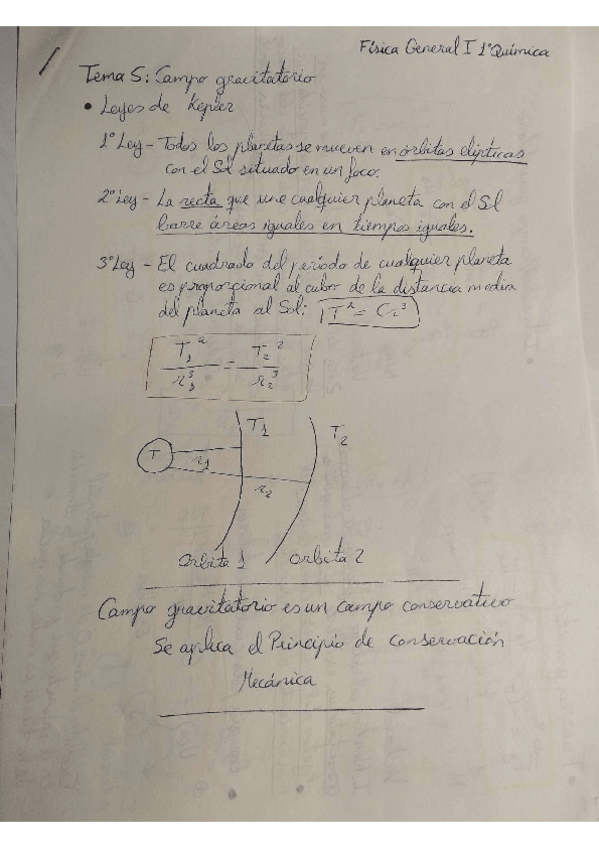 Física General I 1º Química
Tema 5: Campo gravitatorio
• Leyes de Kepler
1º Ley - Todos los planetas se mueven en órbitas elípticas
con el Sol situado en un foco.
2º Ley - La recta que une cualquier planeta con el Sol
barre áreas iguales en tiempos iguales.
3º Ley - El cuadrado del período de cualquier planeta
es proporcional al cubo de la distancia media
del planeta al Sol: T² = Cr³
T₁²/r₁³ = T₂²/r₂³
T₁ T₂
T r₁
r₂
Orbita 1 Orbita 2
Campo gravitatorio es un campo conservativo
Se aplica el Principio de conservación
Mecánica